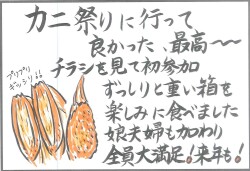 カニ祭りに行って
良かった、最高〜〜
チラシを見て初参加
ずっしりと重い箱を
楽しみに食べました
娘夫婦も加わり
全員大満足!来年も!
プリプリ
ギッシリ!!